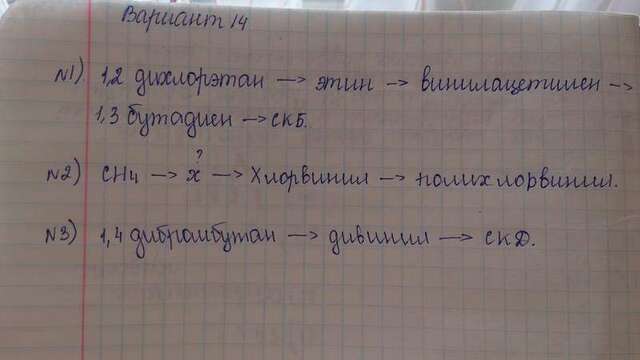 Вариант 14
N1) 1,2 дихлорэтан —> этин —> винилацетилен —>
1,3 бутадиен —> СКБ.
?
N2) CH4 —> x —> Хлорвинил —> полихлорвинил.
N3) 1,4 дибромбутан —> дивинил —> СКД.